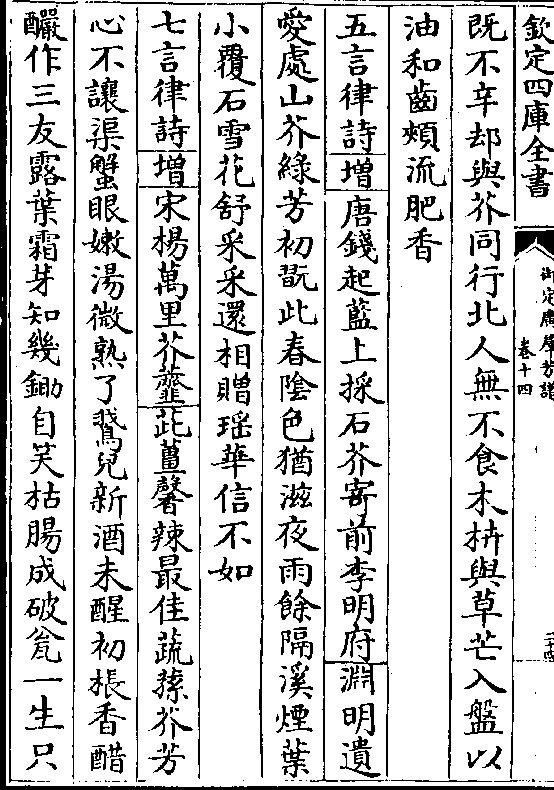 欽定四庫全書
御定廣羣芳譜
卷十四
二十四
既不辛却與芥同行北人無不食木枿與草芒入盤以
油和齒頰流肥香
五言律詩增唐錢起藍上採石芥寄前李明府淵明遺
愛處山芥綠芳初翫此春陰色猶滋夜雨餘隔溪煙葉
小覆石雪花舒采采還相贈瑶華信不如
七言律詩增宋楊萬里芥虀茈薑馨辣最佳蔬蓀芥芳
心不讓渠蟹眼嫩湯微熟了鵞兒新酒未醒初棖香醋
釅作三友露葉霜芽知幾鋤自笑枯腸成破瓮一生只